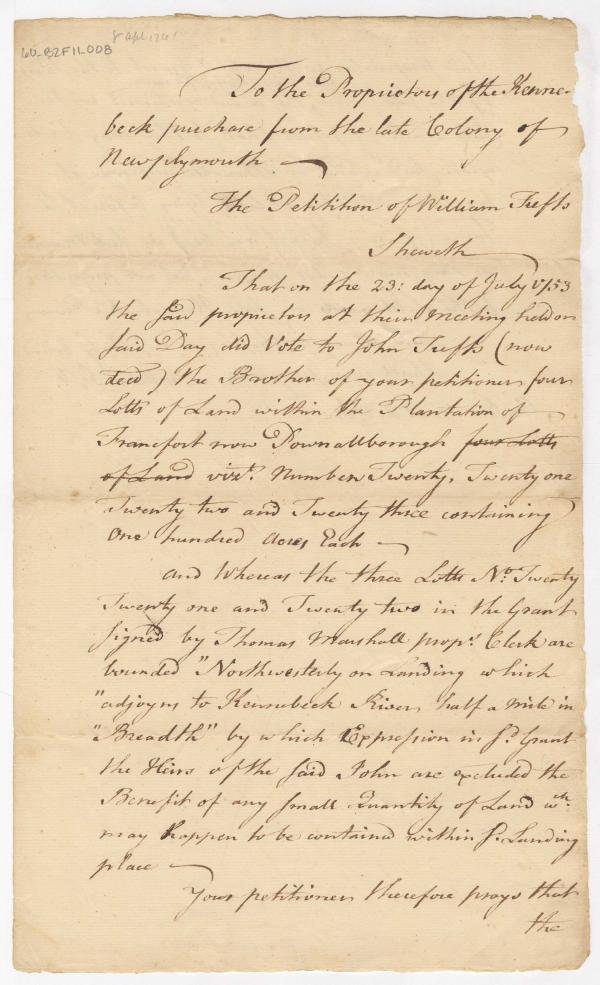 8 apl 1761
60-B2F11-008
To the Proprietors of the Kenne-
beck purchase from the late Colony of
Newplymouth —
The Petitition of William Tufts
Sheweth
That on the 23: day of July 1753
the said propietors at their Meeting held on
said Day did Vote to John Tufts (now
decd) the Brother of your petitioner four
Lotts of Land within the Plantation of
Francfort now Pownallborough four Lotts
of Land vizt. Numbers Twenty, Twenty one
Twenty two and Twenty three containing
One hundred Acres Each —
and Whereas the three Lotts No. Twenty
Twenty one and Twenty two in the Grant
signed by Thomas Marshall propr. Clerk are
bounded "Northwesterly on Landing which
"adjoyns to Kennebeck River half a mile in
"Breadth" by which Expression in sd. Grant
the Heirs of the said John are excluded the
Benefit of any small Quantity of Land wch.
may happen to be contained within sd. Landing
place —
Your petitioner therefore prays that
the